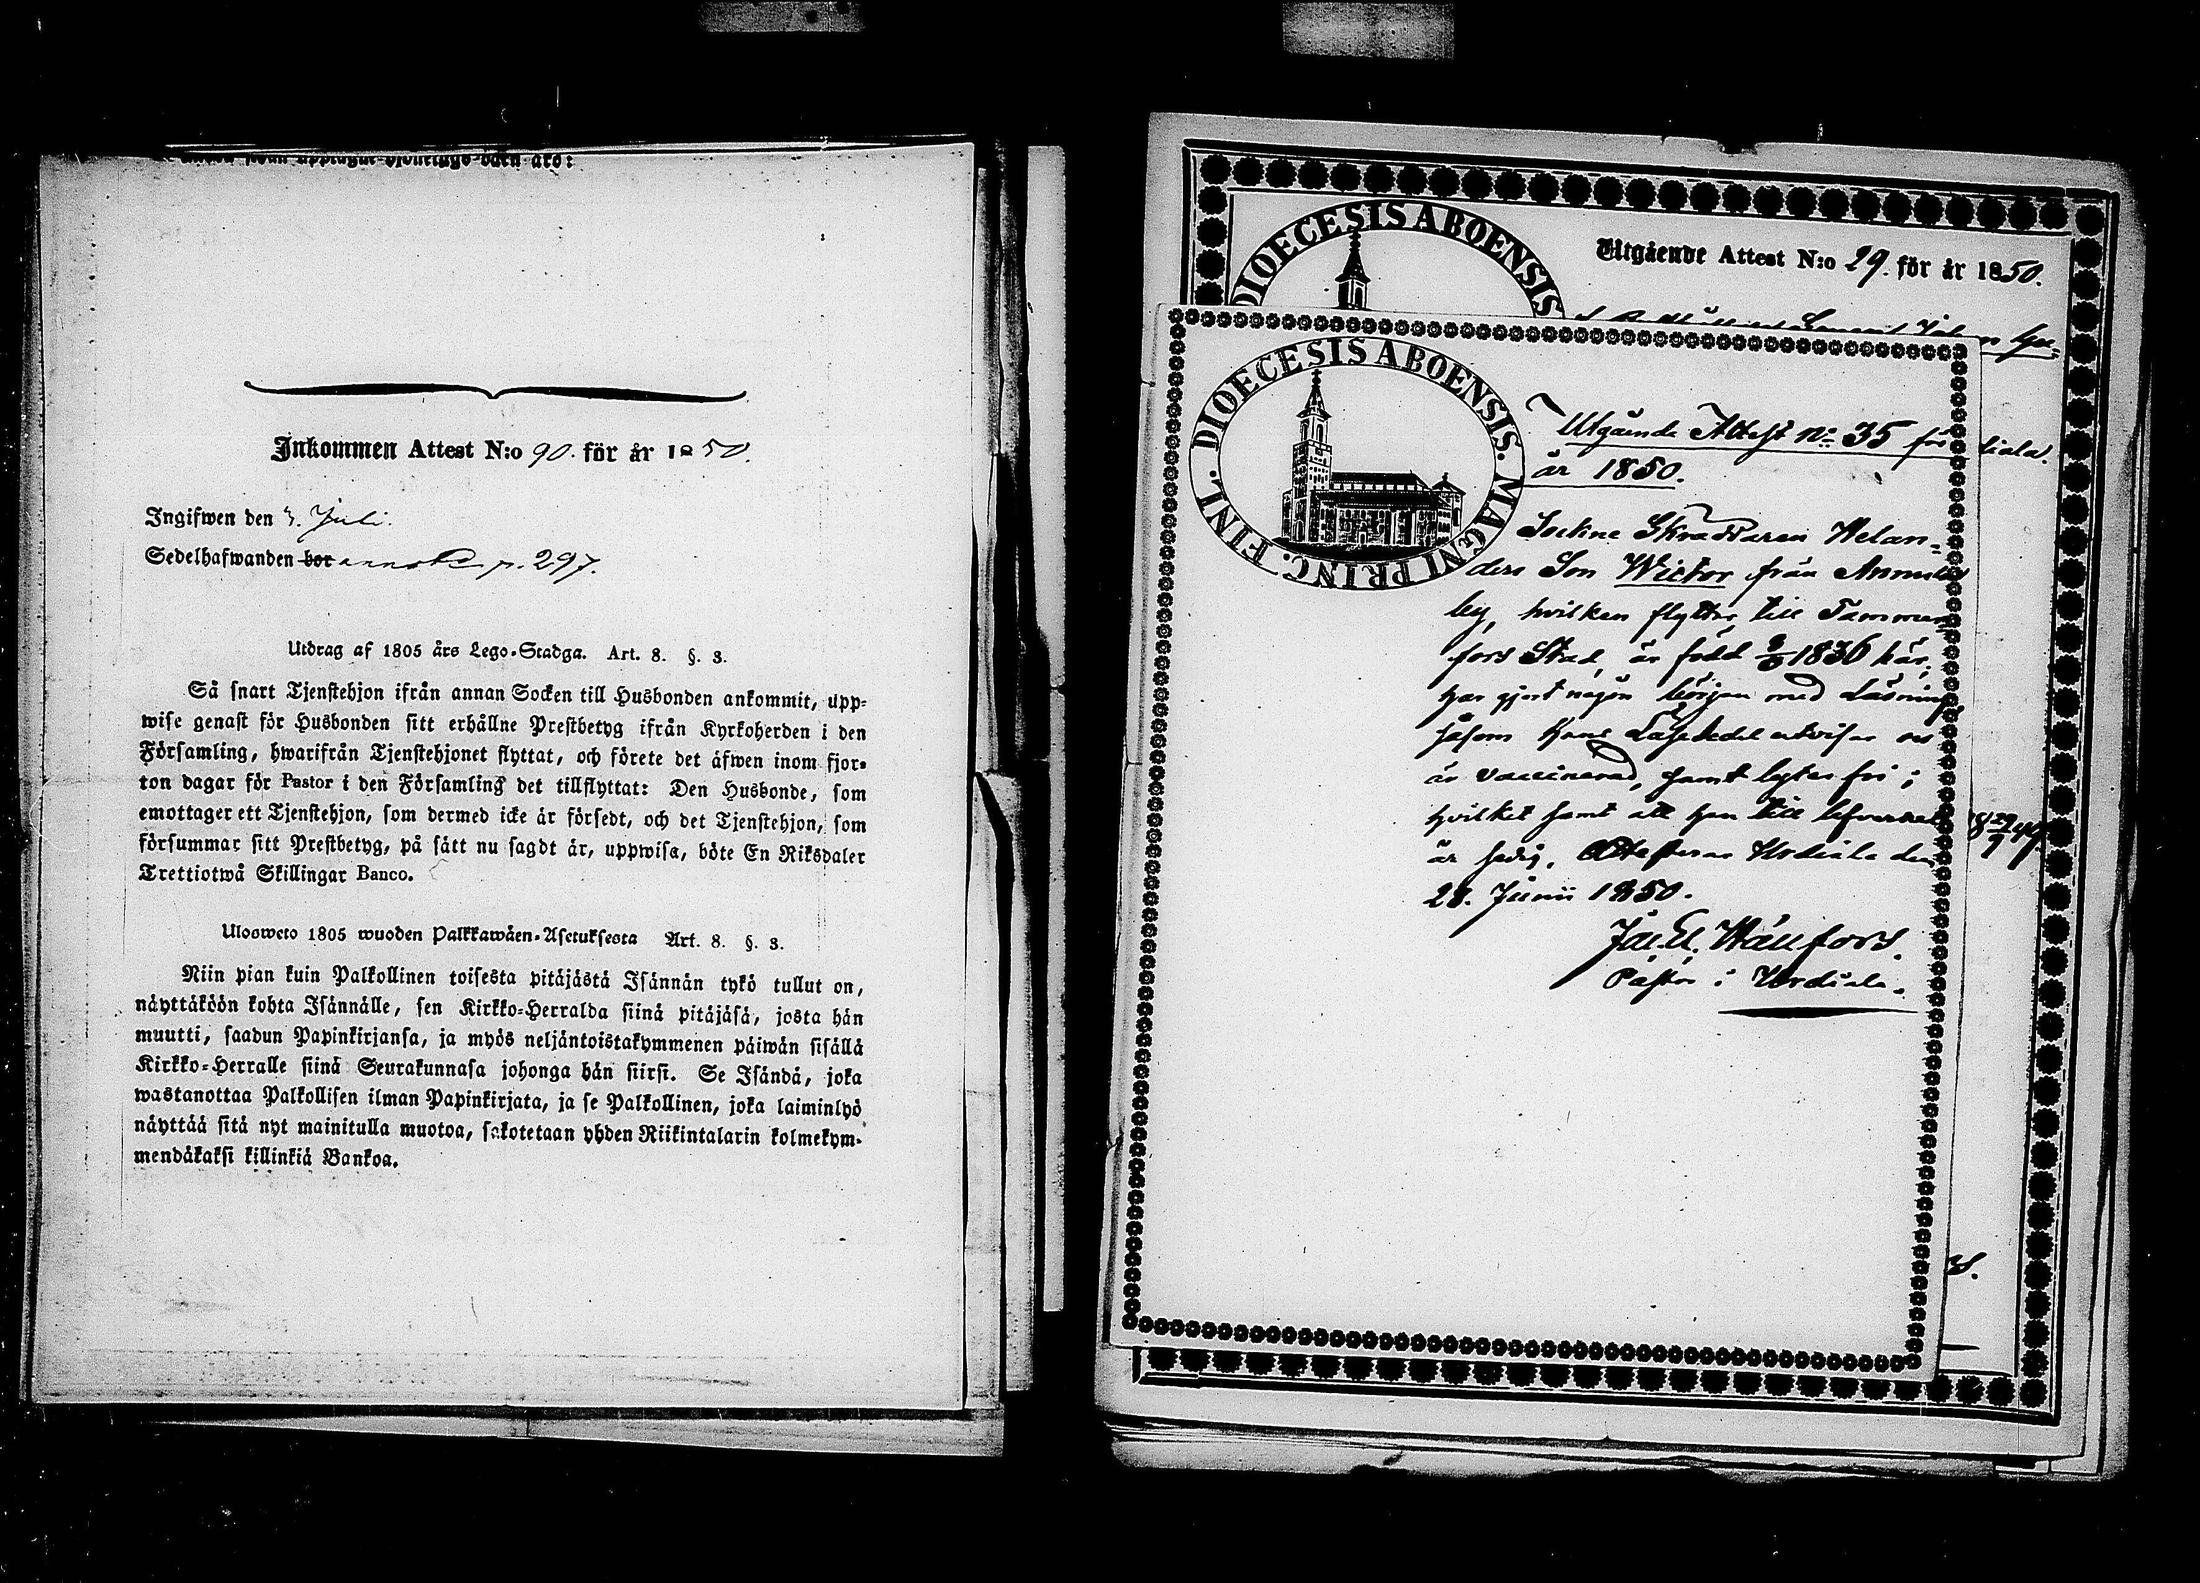 Inkommen Attest N:o 90. för år 1850.
Ingifwen den 3. Juli.
Sedelhafwanden bor annot p. 297.
Utdrag af 1805 års Lego-Stadga. Art. 8. §. 3.
Så snart Tjenstehjon ifrån annan Socken till Husbonden ankommit, upp-
wise genast för Husbonden sitt erhållne Prestbetyg ifrån Kyrkoherden i den
Församling, hwarifrån Tjenstehjonet flyttat, och förete det äfwen inom fjor-
ton dagar för Pastor i den Församling det tillflyttat: Den Husbonde, som
emottager ett Tjenstehjon, som dermed icke är försedt, och det Tjenstehjon, som
försummar sitt Prestbetyg, på sätt nu sagdt är, uppwisa, böte En Riksdaler
Trettiotwå Skillingar Banco.
Ulosweto 1805 wuoden Palkkawäen-Asetuksesta Art. 8. §. 3.
Niin pian kuin Palkollinen toisesta pitäjästä Isännän tykö tullut on,
näyttäköön kohta Isännälle, sen Kirkko-Herralda siinä pitäjäsä, josta hän
muutti, saadun Papinkirjansa, ja myös neljäntoistakymmenen päiwän sisällä
Kirkko-Herralle siinä Seurakunnasa johonga hän siirsi. Se Isändä, joka
wastanottaa Palkollisen ilman Papinkirjata, ja se Palkollinen, joka laiminlyö
näyttää sitä nyt mainitulla muotoa, sakotetaan yhden Riikintalarin kolmekym-
mendäkaksi killinkiä Bankoa.
DIOECESIS ABOENSIS
Utgående Attest N:o 29. för år 1850.
DIOECESIS ABOENSIS. MAGNI PRINC. FINL.
Utgående Attest No 35 för
år 1850.
Sockne Skraddaren Helan-
ders Son Wictor från Annula
by, hvilken flyttar till Tammer
fors Stad, är född 1836 här,
har gjort någon början med Läsning
såsom hans Läsesedel utvisar och
är vaccinerad, samt lytes fri;
hvilket samt att han till lefvernet
är sedig, Attesteras Urdiala den
28. Junii 1850.
Jac. Ed. Wällfors.
Pastor i Urdiala.